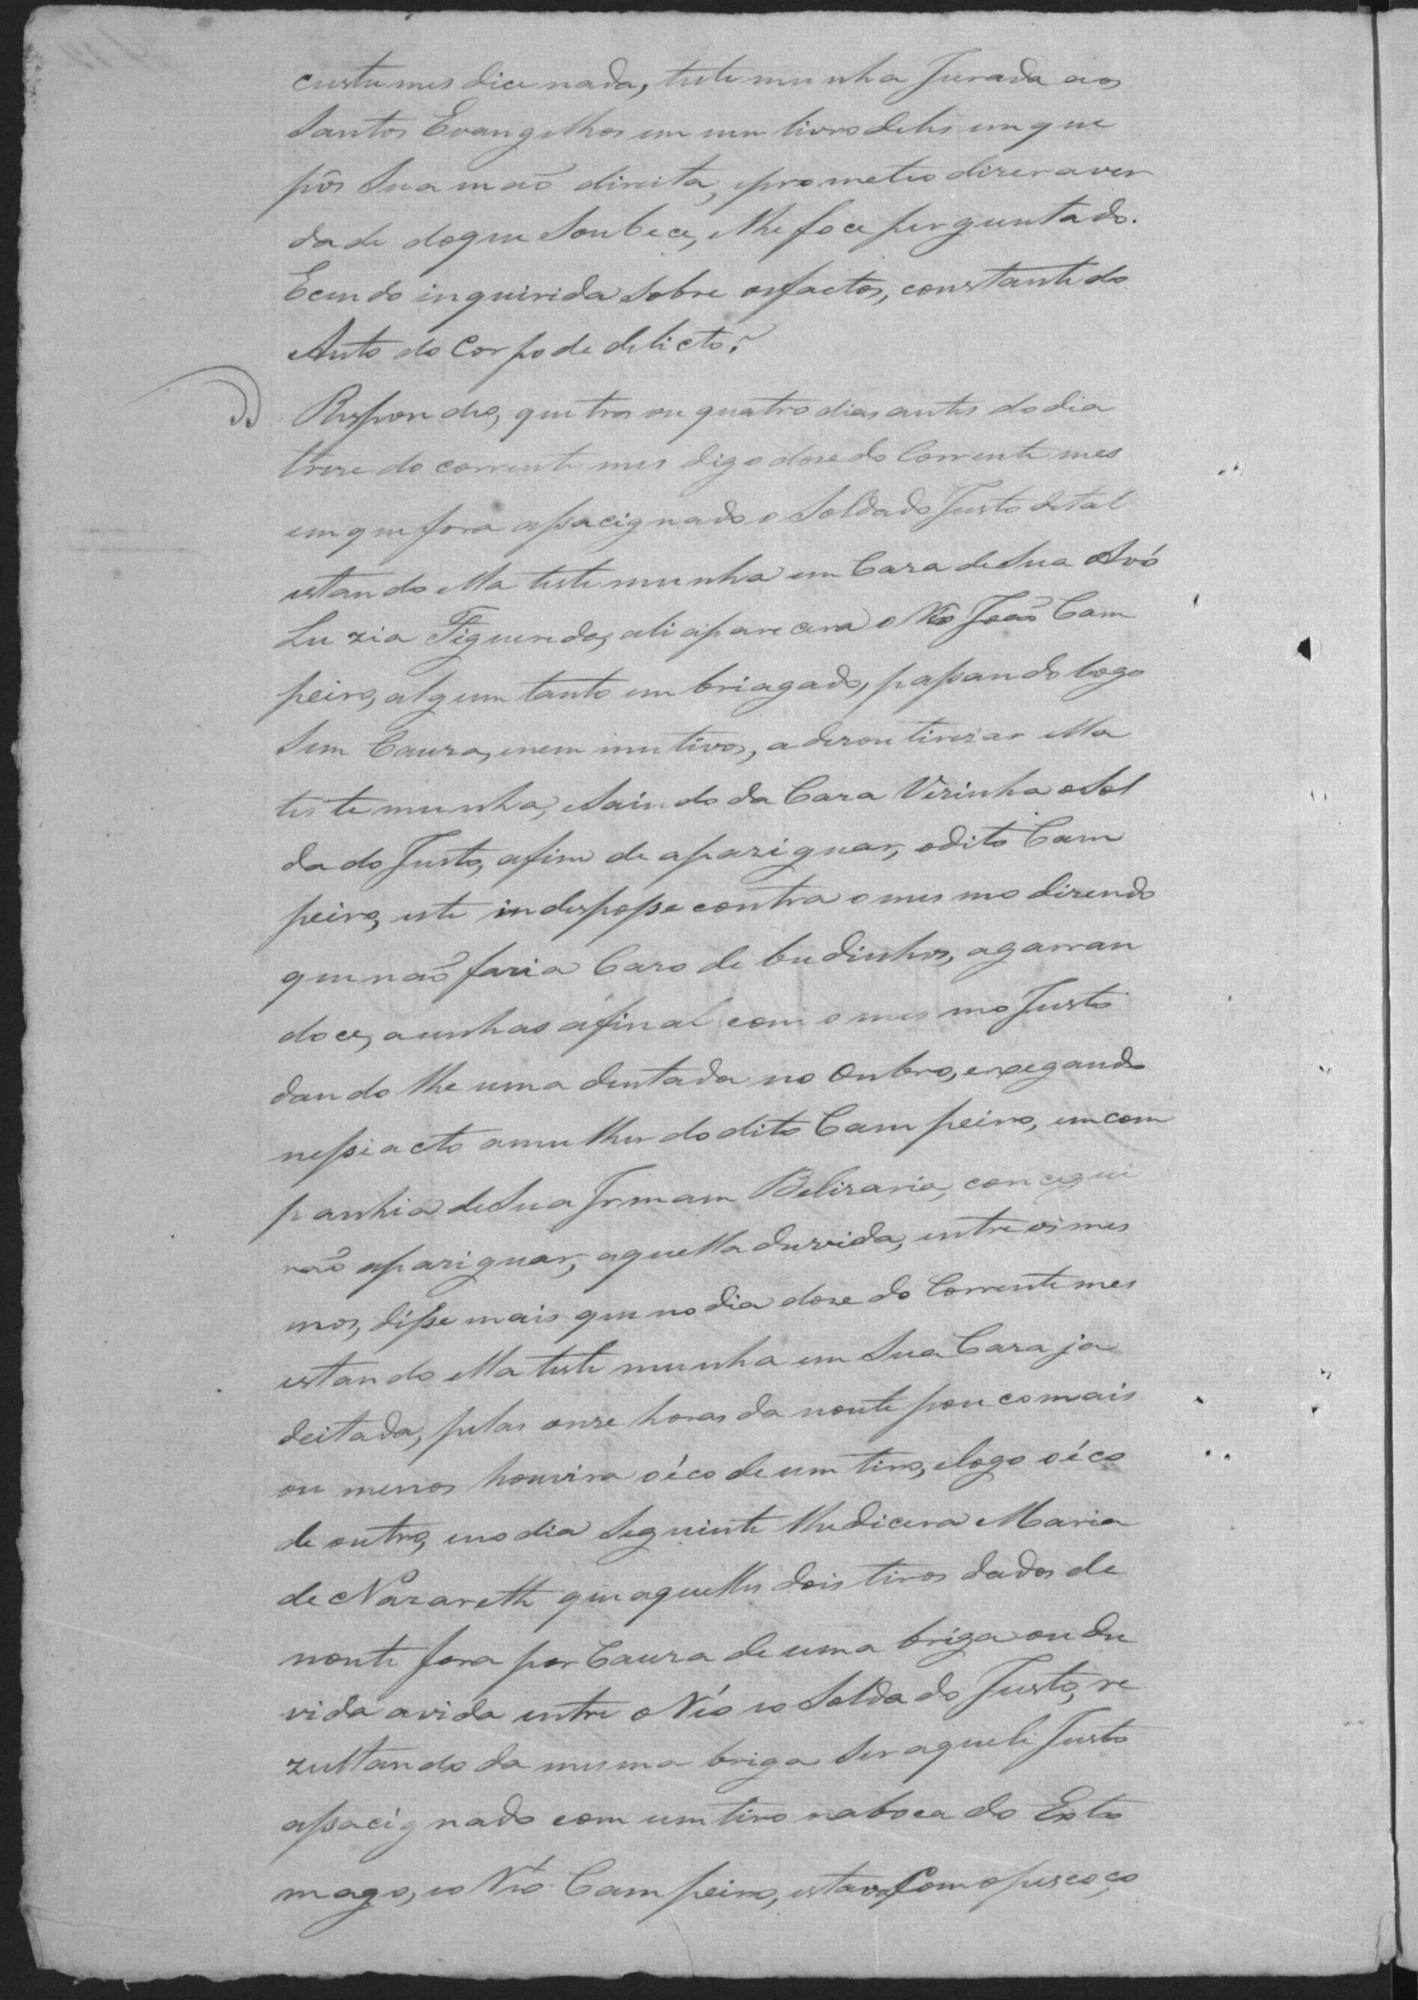 custumes dice nada, testemunha Jurada aos
Santos Evangelhos em um livro deles em que
pôs Sua maõ direita, e prometeo dizer a ver
dade do que Soubece, e lhe foce perguntado.
E cendo inquirida Sobre os factos, constante do
Auto do Corpo de delicto?
Respondeo, que tres ou quatro dias antes do dia
treze do corrente mes digo doze do Corrente mes
em que fora assacignado o Soldado Justo de tal
estando ella testemunha em Caza de Sua Avó
Luzia Figueredo, ali aparecera o Réo Joaõ Cam
peiro, algum tanto embriagado, passando logo
Sem Cauza, e nem mutivos, a dezoutirizar ella
testemunha, e Saindo da Caza Vizinha o Sol
dado Justo, afim de apaziguar, o dito Cam
peiro, este indesposse contra o mesmo dizendo
que naõ faria Cazo de budinhos, agarran
doce, a unhas afinal com o mesmo Justo
dando lhe uma dentada no Onbro, e xegando
nesse acto a mulher do dito Campeiro, em com
panhia de Sua Irmam Belizaria, concegui
raõ apaziguar, aquella duvida, entre os mes
mos, disse mais que no dia doze do Corrente mes
estando ella testemunha em Sua Caza ja
deitada, pelas onze horas da noute pouco mais
ou menos houvira o éco de um tiro, e logo o éco
de outro, e no dia Seguinte lhe dicera Maria
de Nazareth que aquelles dois tiros dados de
noute fora por Cauza de uma briga ou du
vida avida entre o Réo e o Soldado Justo, re
zultando da mesma briga Ser aquele Justo
assacignado com um tiro na boca do Esto
mago, e o Réo Campeiro, estava Com o pescoço